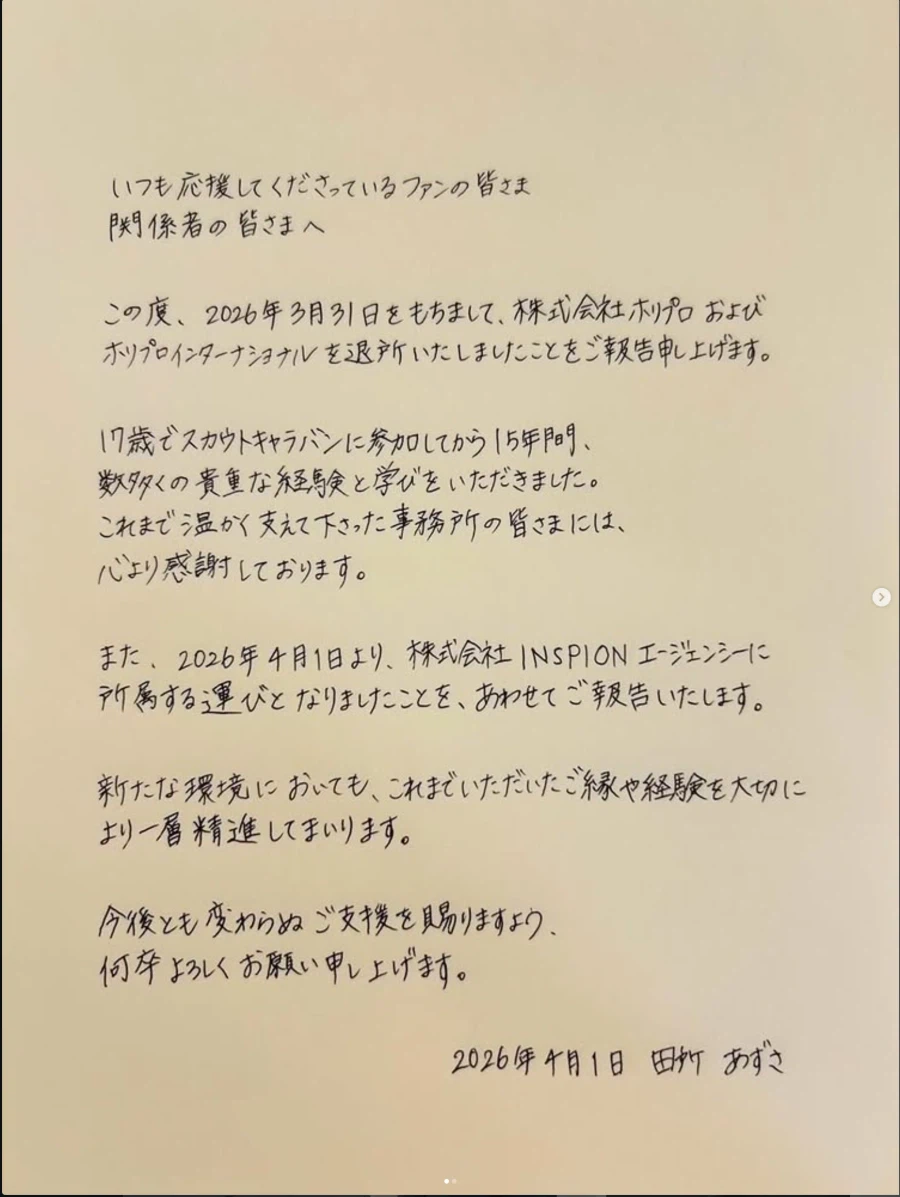 いつも応援してくださっているファンの皆さま
関係者の皆さまへ
この度、2026年3月31日をもちまして、株式会社ホリプロ および
ホリプロインターナショナルを退所いたしましたことをご報告申し上げます。
17歳でスカウトキャラバンに参加してから15年間、
数多くの貴重な経験と学びをいただきました。
これまで温かく支えて下さった事務所の皆さまには、
心より感謝しております。
また、2026年4月1日より、株式会社INSPIONエージェンシーに
所属する運びとなりましたことを、あわせてご報告いたします。
新たな環境においても、これまでいただいたご縁や経験を大切に
より一層精進してまいります。
今後とも変わらぬご支援を賜りますよう、
何卒よろしくお願い申し上げます。
2026年4月1日 田所 あずさ